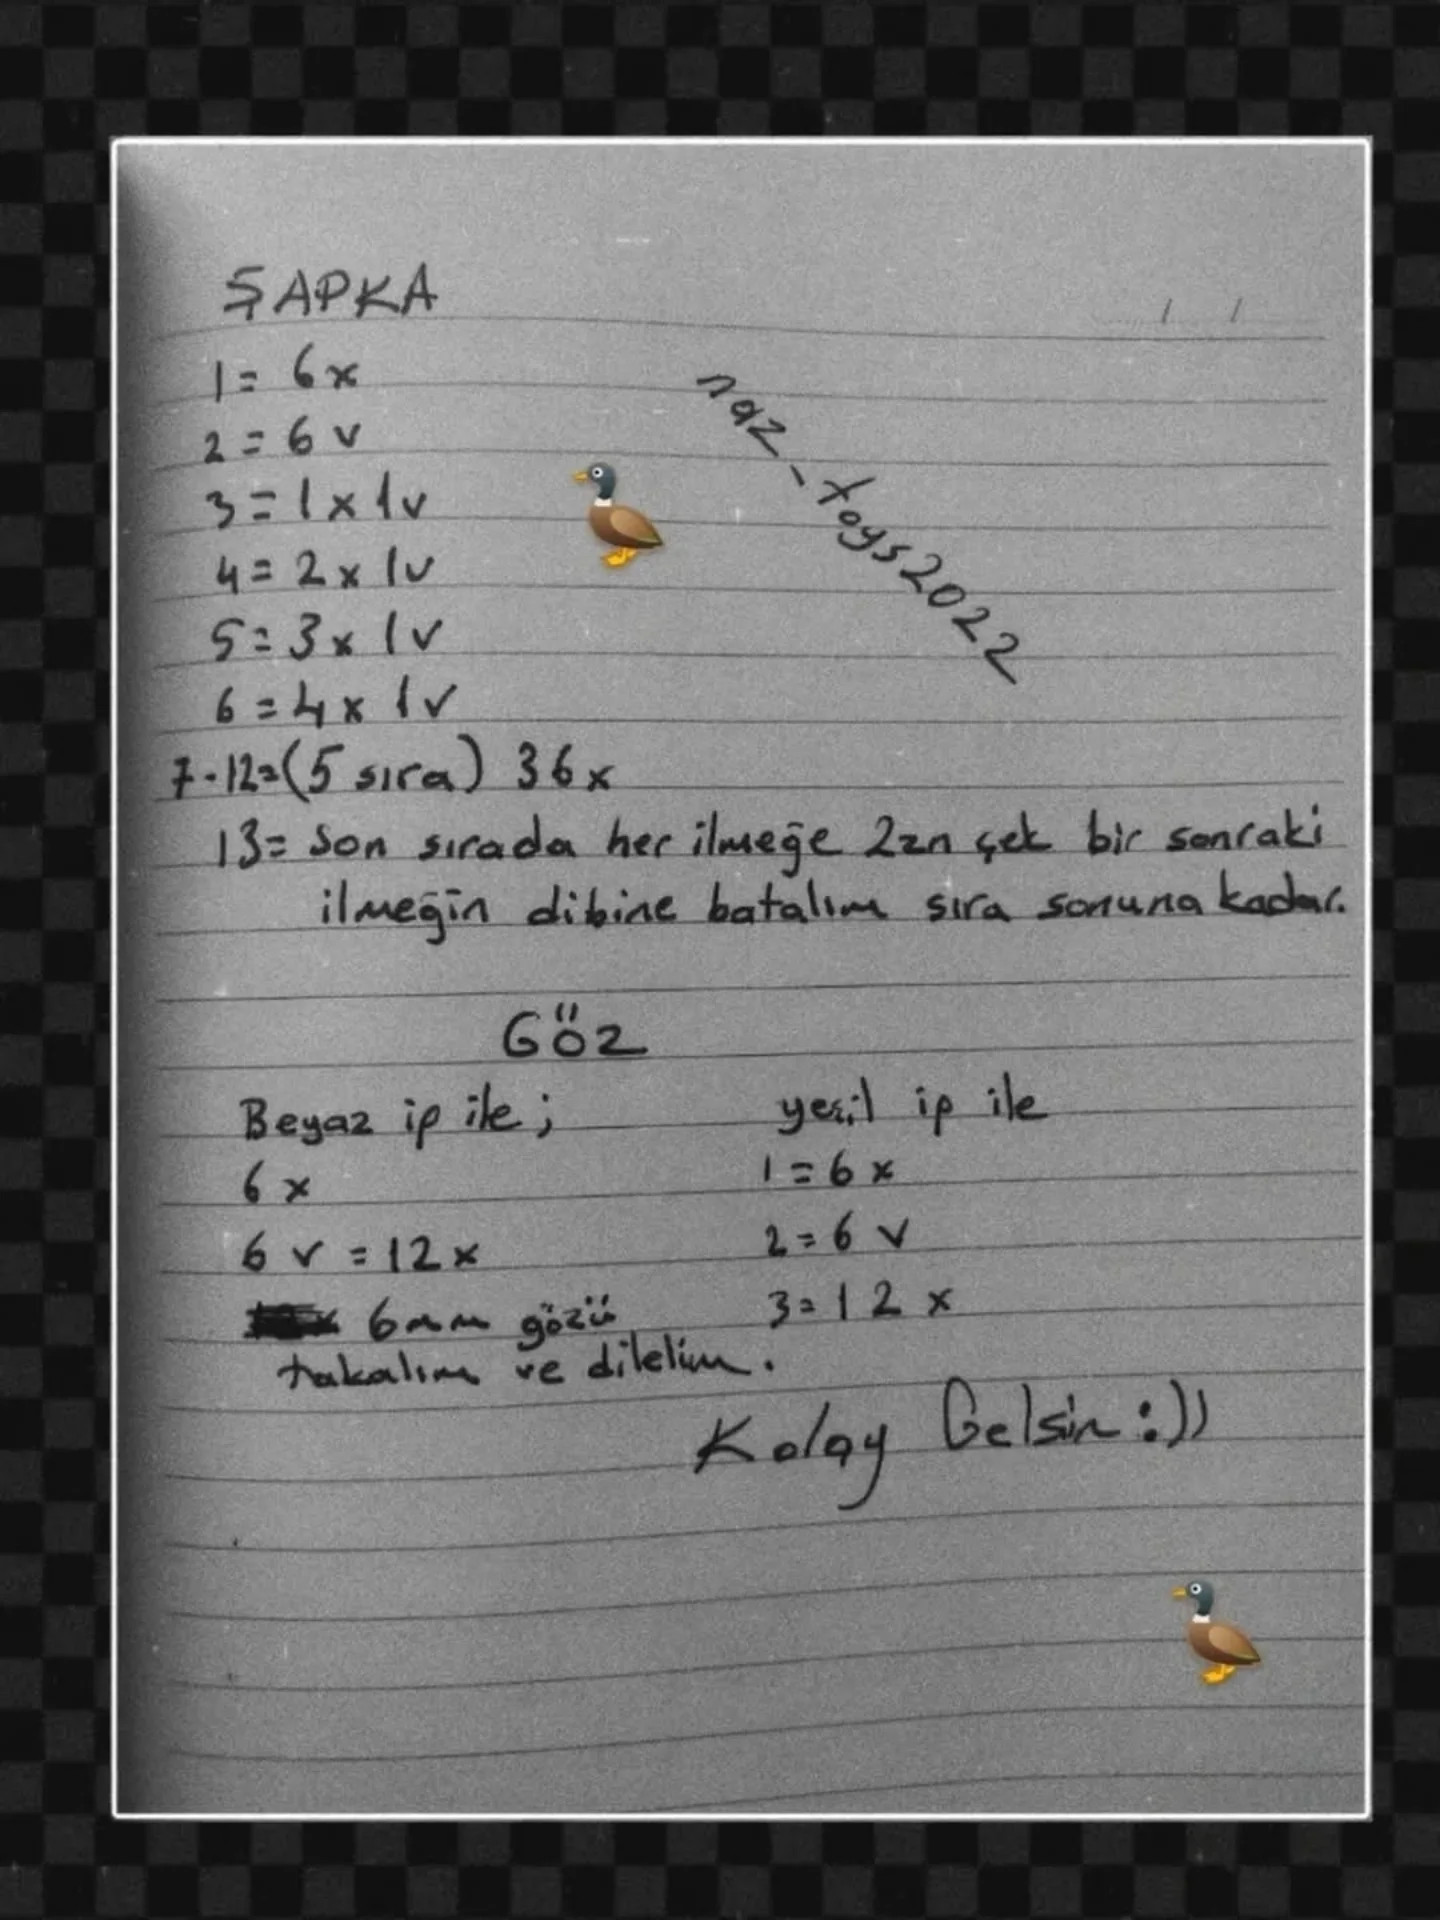 ŞAPKA
1 = 6x
2 = 6 v
3 = 1 x 1v
4 = 2 x 1v
5 = 3 x 1v
6 = 4 x 1v
7-12=(5 sıra) 36x
13= Son sırada her ilmeğe 2zn çek bir sonraki
ilmeğin dibine batalım sıra sonuna kadar.
naz_toys2022
GÖZ
Beyaz ip ile;
6 x
6 v = 12x
6mm gözü
takalım ve dikelim.
yeşil ip ile
1 = 6 x
2 = 6 v
3 = 12 x
Kolay Gelsin :))